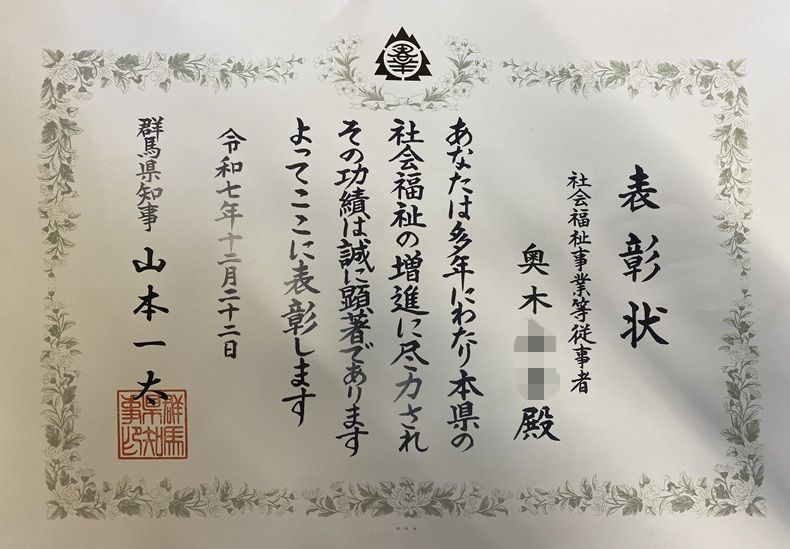 表彰状
社会福祉事業等従事者
奥木 殿
あなたは多年にわたり本県の
社会福祉の増進に尽力され
その功績は誠に顕著であります
よってここに表彰します
令和七年十二月二十二日
群馬県知事 山本一太
群馬
県知
事印